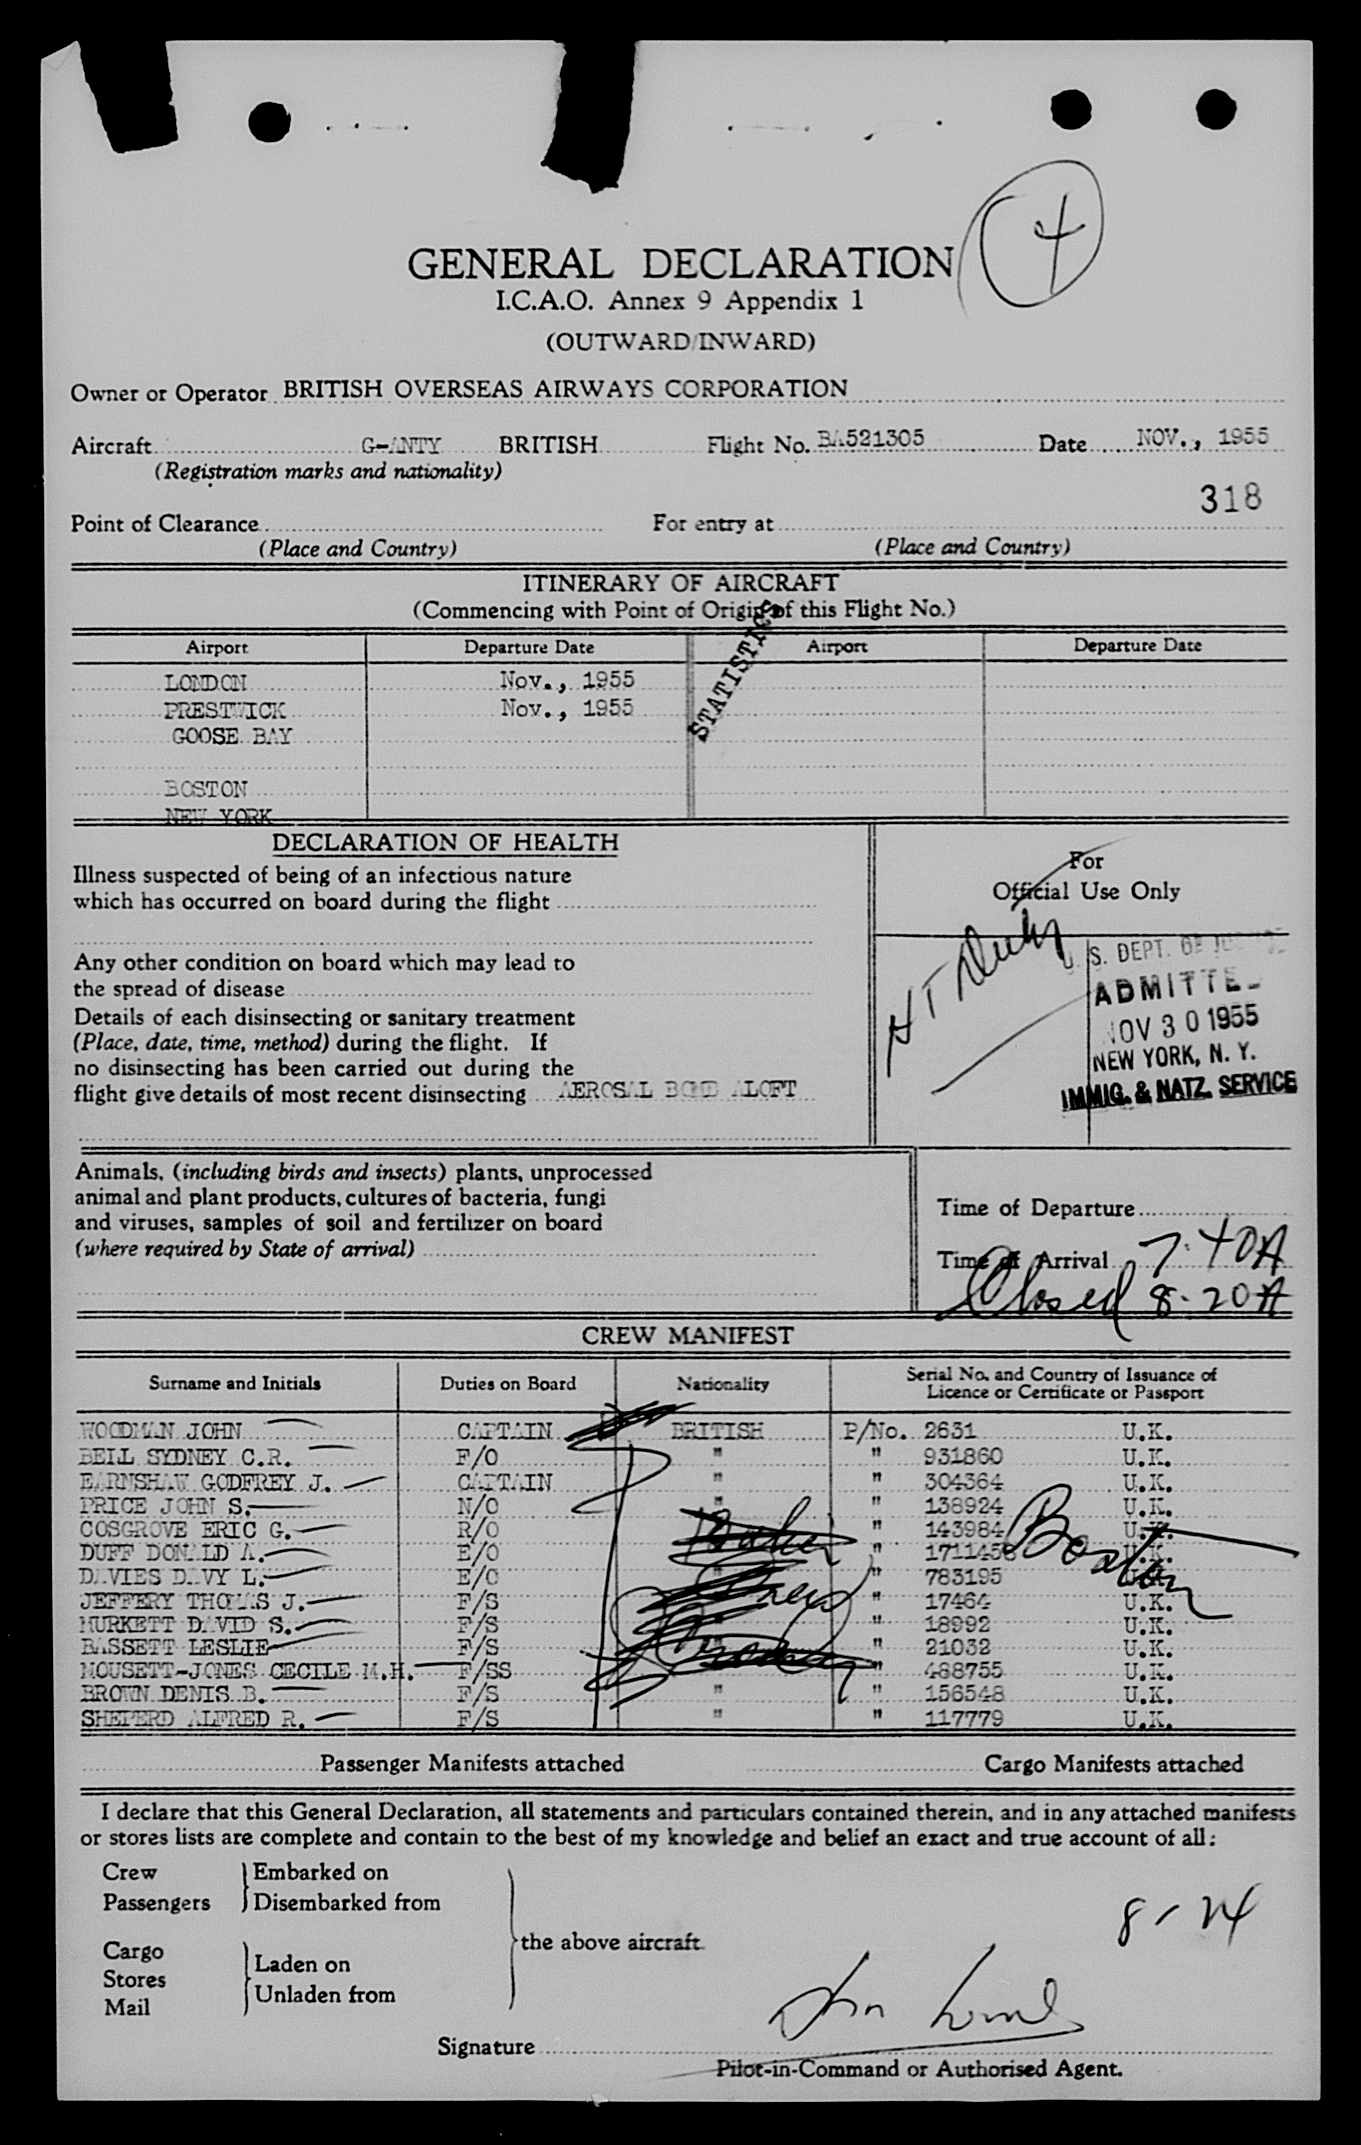 4
GENERAL DECLARATION
I.C.A.O. Annex 9 Appendix 1
(OUTWARD/INWARD)
Owner or Operator BRITISH OVERSEAS AIRWAYS CORPORATION
Aircraft G-ANTY BRITISH Flight No. BA521305 Date NOV., 1955
(Registration marks and nationality)
318
Point of Clearance For entry at
(Place and Country) (Place and Country)
ITINERARY OF AIRCRAFT
(Commencing with Point of Origin of this Flight No.)
STATISTICS
Airport Departure Date Airport Departure Date
LONDON Nov., 1955
PRESTWICK Nov., 1955
GOOSE BAY
BOSTON
NEW YORK
DECLARATION OF HEALTH
Illness suspected of being of an infectious nature
which has occurred on board during the flight
Any other condition on board which may lead to
the spread of disease
Details of each disinsecting or sanitary treatment
(Place, date, time, method) during the flight. If
no disinsecting has been carried out during the
flight give details of most recent disinsecting AEROSAL BOMB ALOFT
For
Official Use Only
U. S. DEPT. OF JUSTICE
ADMITTED
NOV 30 1955
NEW YORK, N. Y.
IMMIG. & NATZ. SERVICE
Animals, (including birds and insects) plants, unprocessed
animal and plant products, cultures of bacteria, fungi
and viruses, samples of soil and fertilizer on board
(where required by State of arrival)
Time of Departure
Time of Arrival 7:40A
Closed 8-20A
CREW MANIFEST
Surname and Initials Duties on Board Nationality Serial No. and Country of Issuance of
Licence or Certificate or Passport
WOODMAN JOHN CAPTAIN BRITISH P/No. 2631 U.K.
BELL SYDNEY C.R. F/O " " 931860 U.K.
EARNSHAW GODFREY J. CAPTAIN " " 304364 U.K.
PRICE JOHN S. N/O " " 138924 U.K.
COSGROVE ERIC G. R/O " 143984 U.K.
DUFF DONALD A. E/O " 1711456 U.K.
DAVIES DAVY L. E/O " 783195 U.K.
JEFFERY THOMAS J. F/S " 17464 U.K.
MURKETT DAVID S. F/S " 18992 U.K.
BASSETT LESLIE F/S " 21032 U.K.
MOUSETT-JONES CECILE M.H. F/SS " 488755 U.K.
BROWN DENIS B. F/S " " 156548 U.K.
SHEPERD ALFRED R. F/S " " 117779 U.K.
Boston
Passenger Manifests attached Cargo Manifests attached
I declare that this General Declaration, all statements and particulars contained therein, and in any attached manifests
or stores lists are complete and contain to the best of my knowledge and belief an exact and true account of all:
Crew Embarked on
Passengers Disembarked from
the above aircraft.
Cargo
Stores
Mail
Laden on
Unladen from
8-24
Signature
Pilot-in-Command or Authorised Agent.